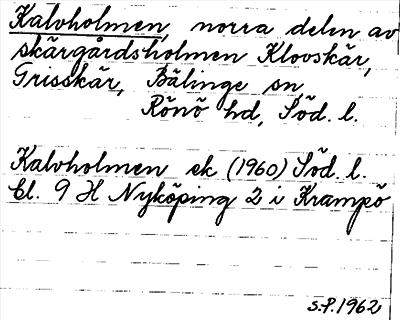 Kalvholmen, norra delen av
skärgårdsholmen Klovskär,
Grisskär, Bälinge sn,
Rönö hd, Söd. l.
Kalvholmen ek (1960) Söd. l.
bl. 9 H Nyköping 2 i Krampö
S.P. 1962